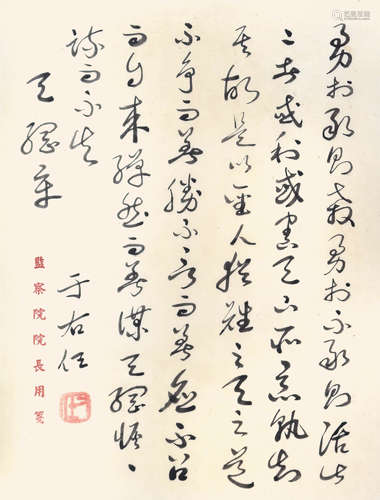 勇於敢則殺勇於不敢則活此
二者或利或害天之所惡孰知
其故是以聖人猶難之天之道
不爭而善勝不言而善應不召
而自來繟然而善謀天網恢〻
疏而不失
天網章
于右任
監察院院長用箋